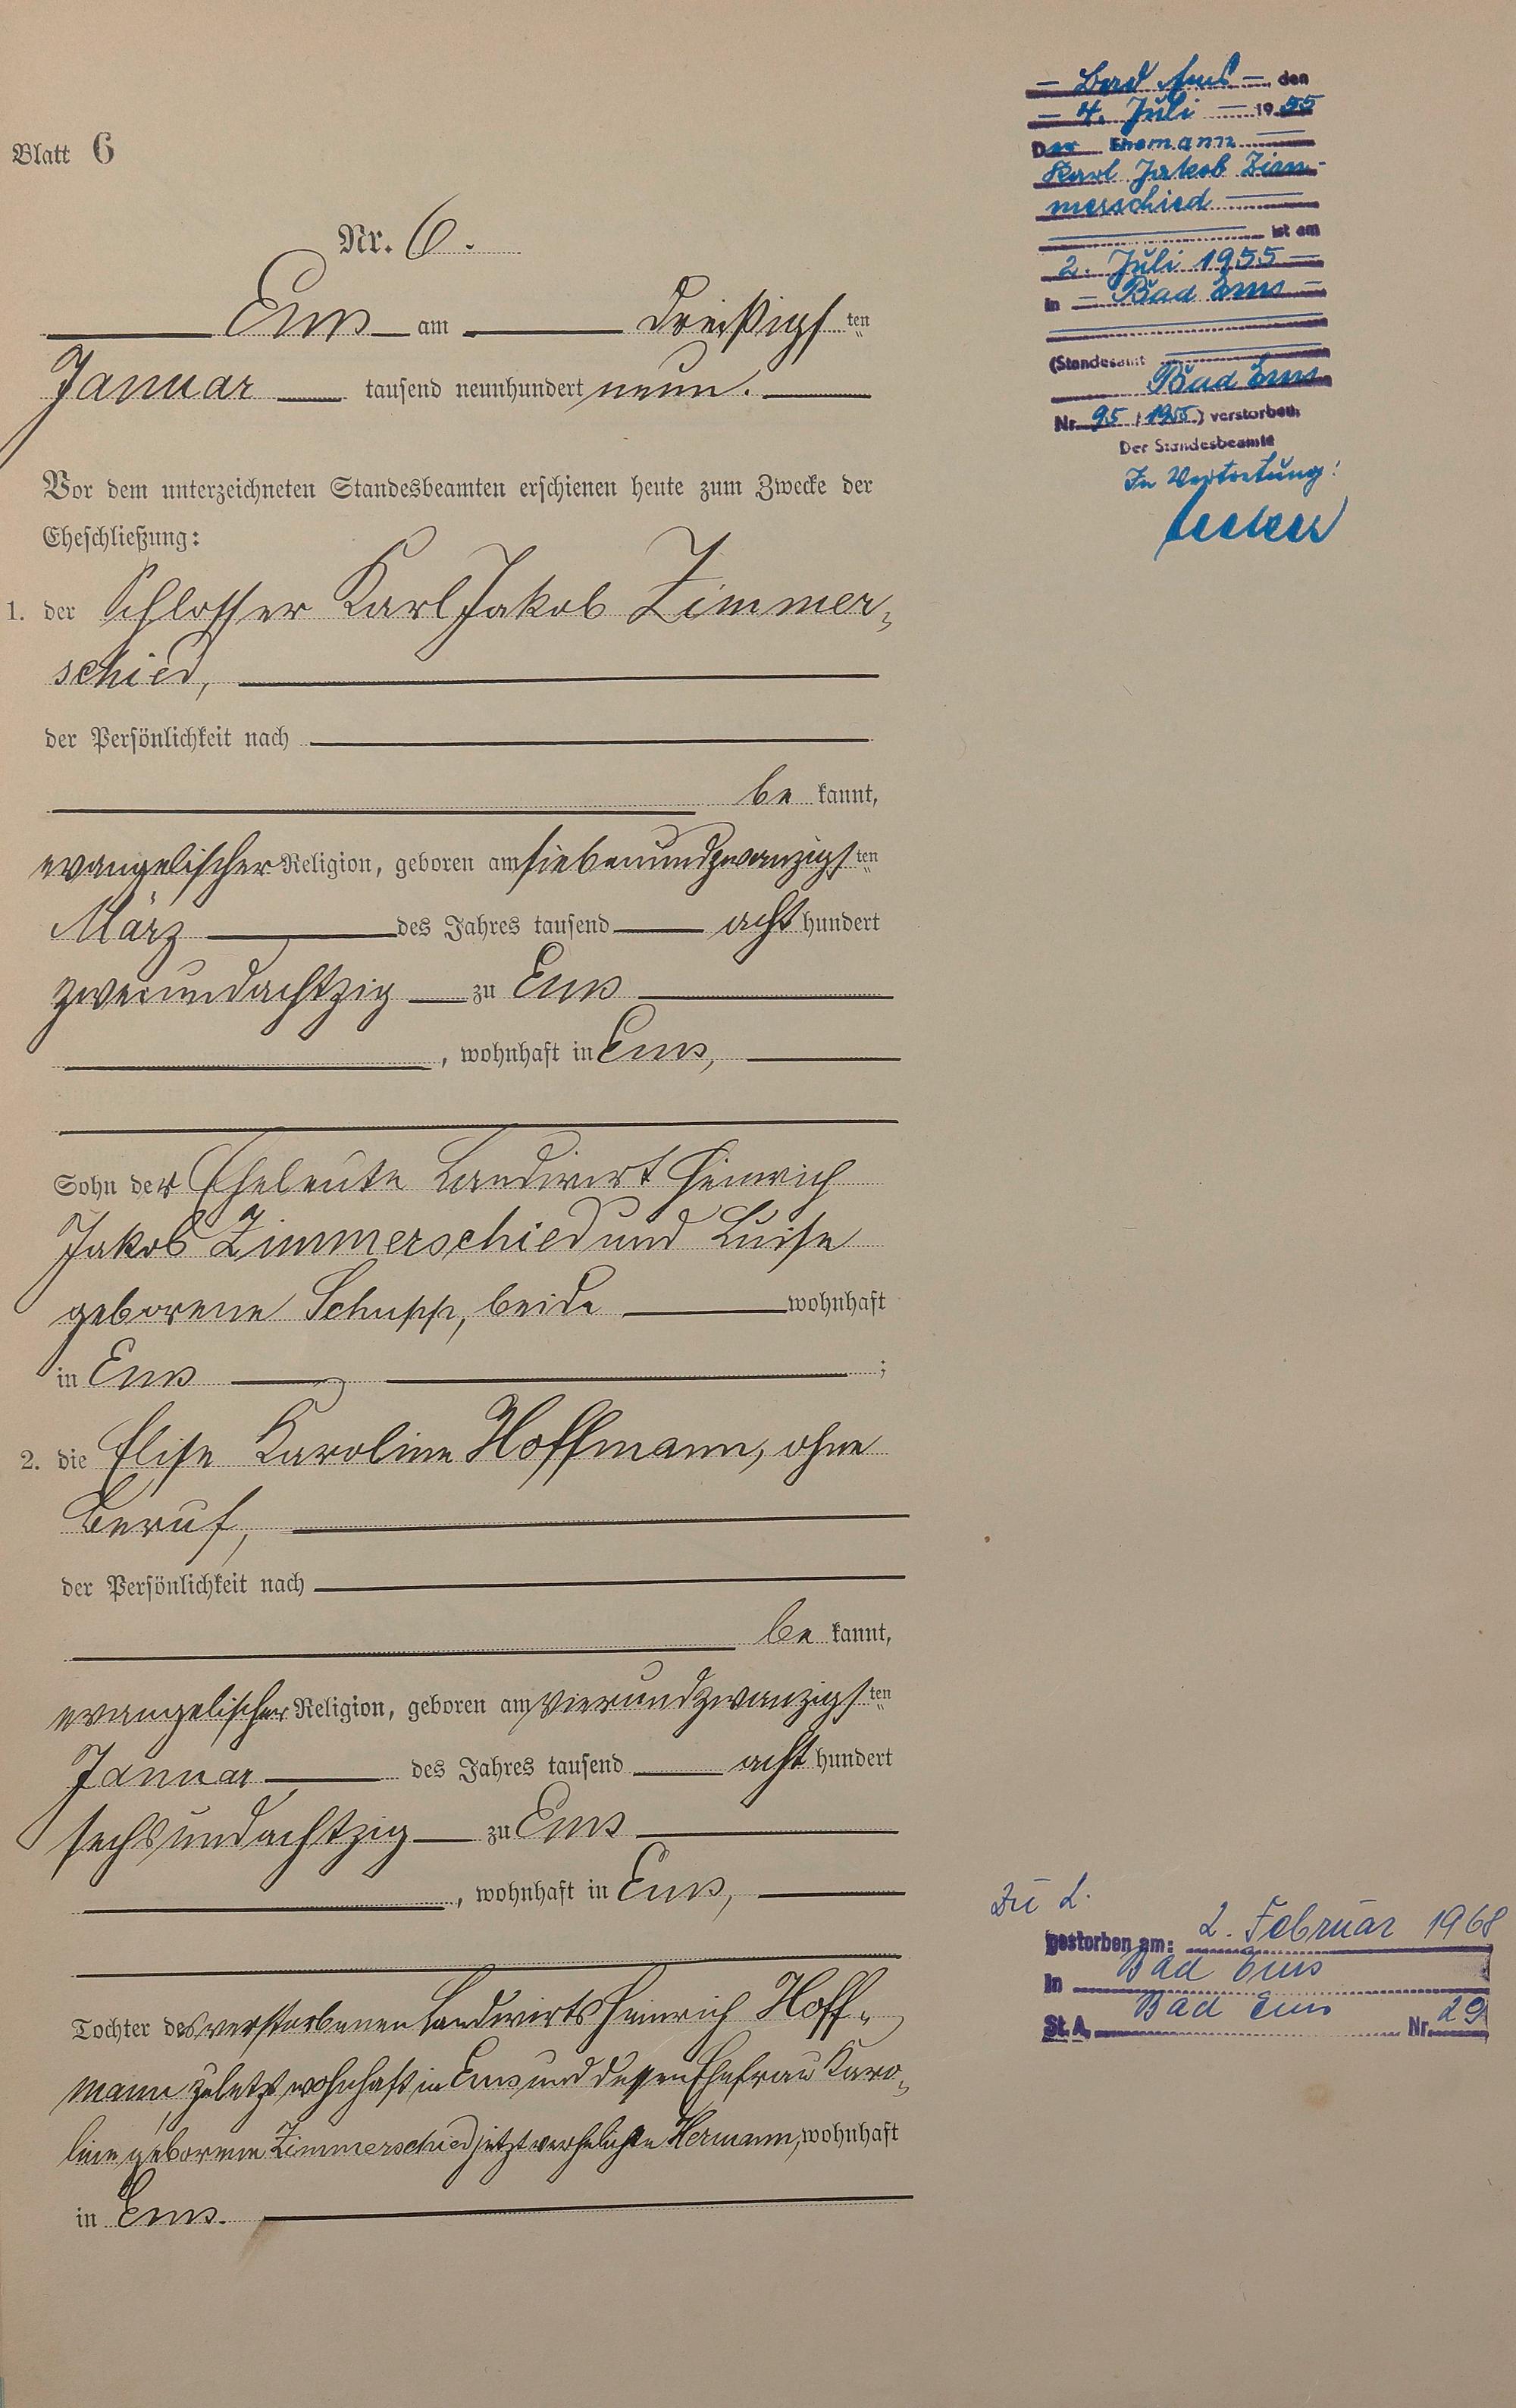 Blatt 6
Nr. 6.
Ems am dreißigsten
Januar tausend neunhundert neun.
Vor dem unterzeichneten Standesbeamten erschienen heute zum Zwecke der
Eheschließung:
1. der Schlosser Karl Jakob Zimmer-
schied,
der Persönlichkeit nach
be kannt,
evangelischer Religion, geboren am siebenundzwanzigsten
März des Jahres tausend acht hundert
zweiundachtzig zu Ems
, wohnhaft in Ems,
Sohn der Eheleute Landwirt Heinrich
Jakob Zimmerschied und Luise
geborene Schupp, beide wohnhaft
in Ems ;
2. die Elise Karoline Hoffmann, ohne
Beruf,
der Persönlichkeit nach
be kannt,
evangelischer Religion, geboren am vierundzwanzigsten
Januar des Jahres tausend acht hundert
sechsundachtzig zu Ems
, wohnhaft in Ems,
Tochter des verstorbenen Landwirts Heinrich Hoff-
mann, zuletzt wohnhaft in Ems und dessen Ehefrau Karo-
line geborene Zimmerschied jetzt verehelichte Hermann, wohnhaft
in Ems.
– Bad Ems –, den
– 4. Juli – 1955
Der Ehemann
Karl Jakob Zim-
merschied
ist am
2. Juli 1955 –
in – Bad Ems –
(Standesamt
Bad Ems
Nr. 95 / 1955.) verstorben.
Der Standesbeamte
In Vertretung!
Zu 2.
gestorben am: 2. Februar 1968
in Bad Ems
St. A. Bad Ems Nr. 29